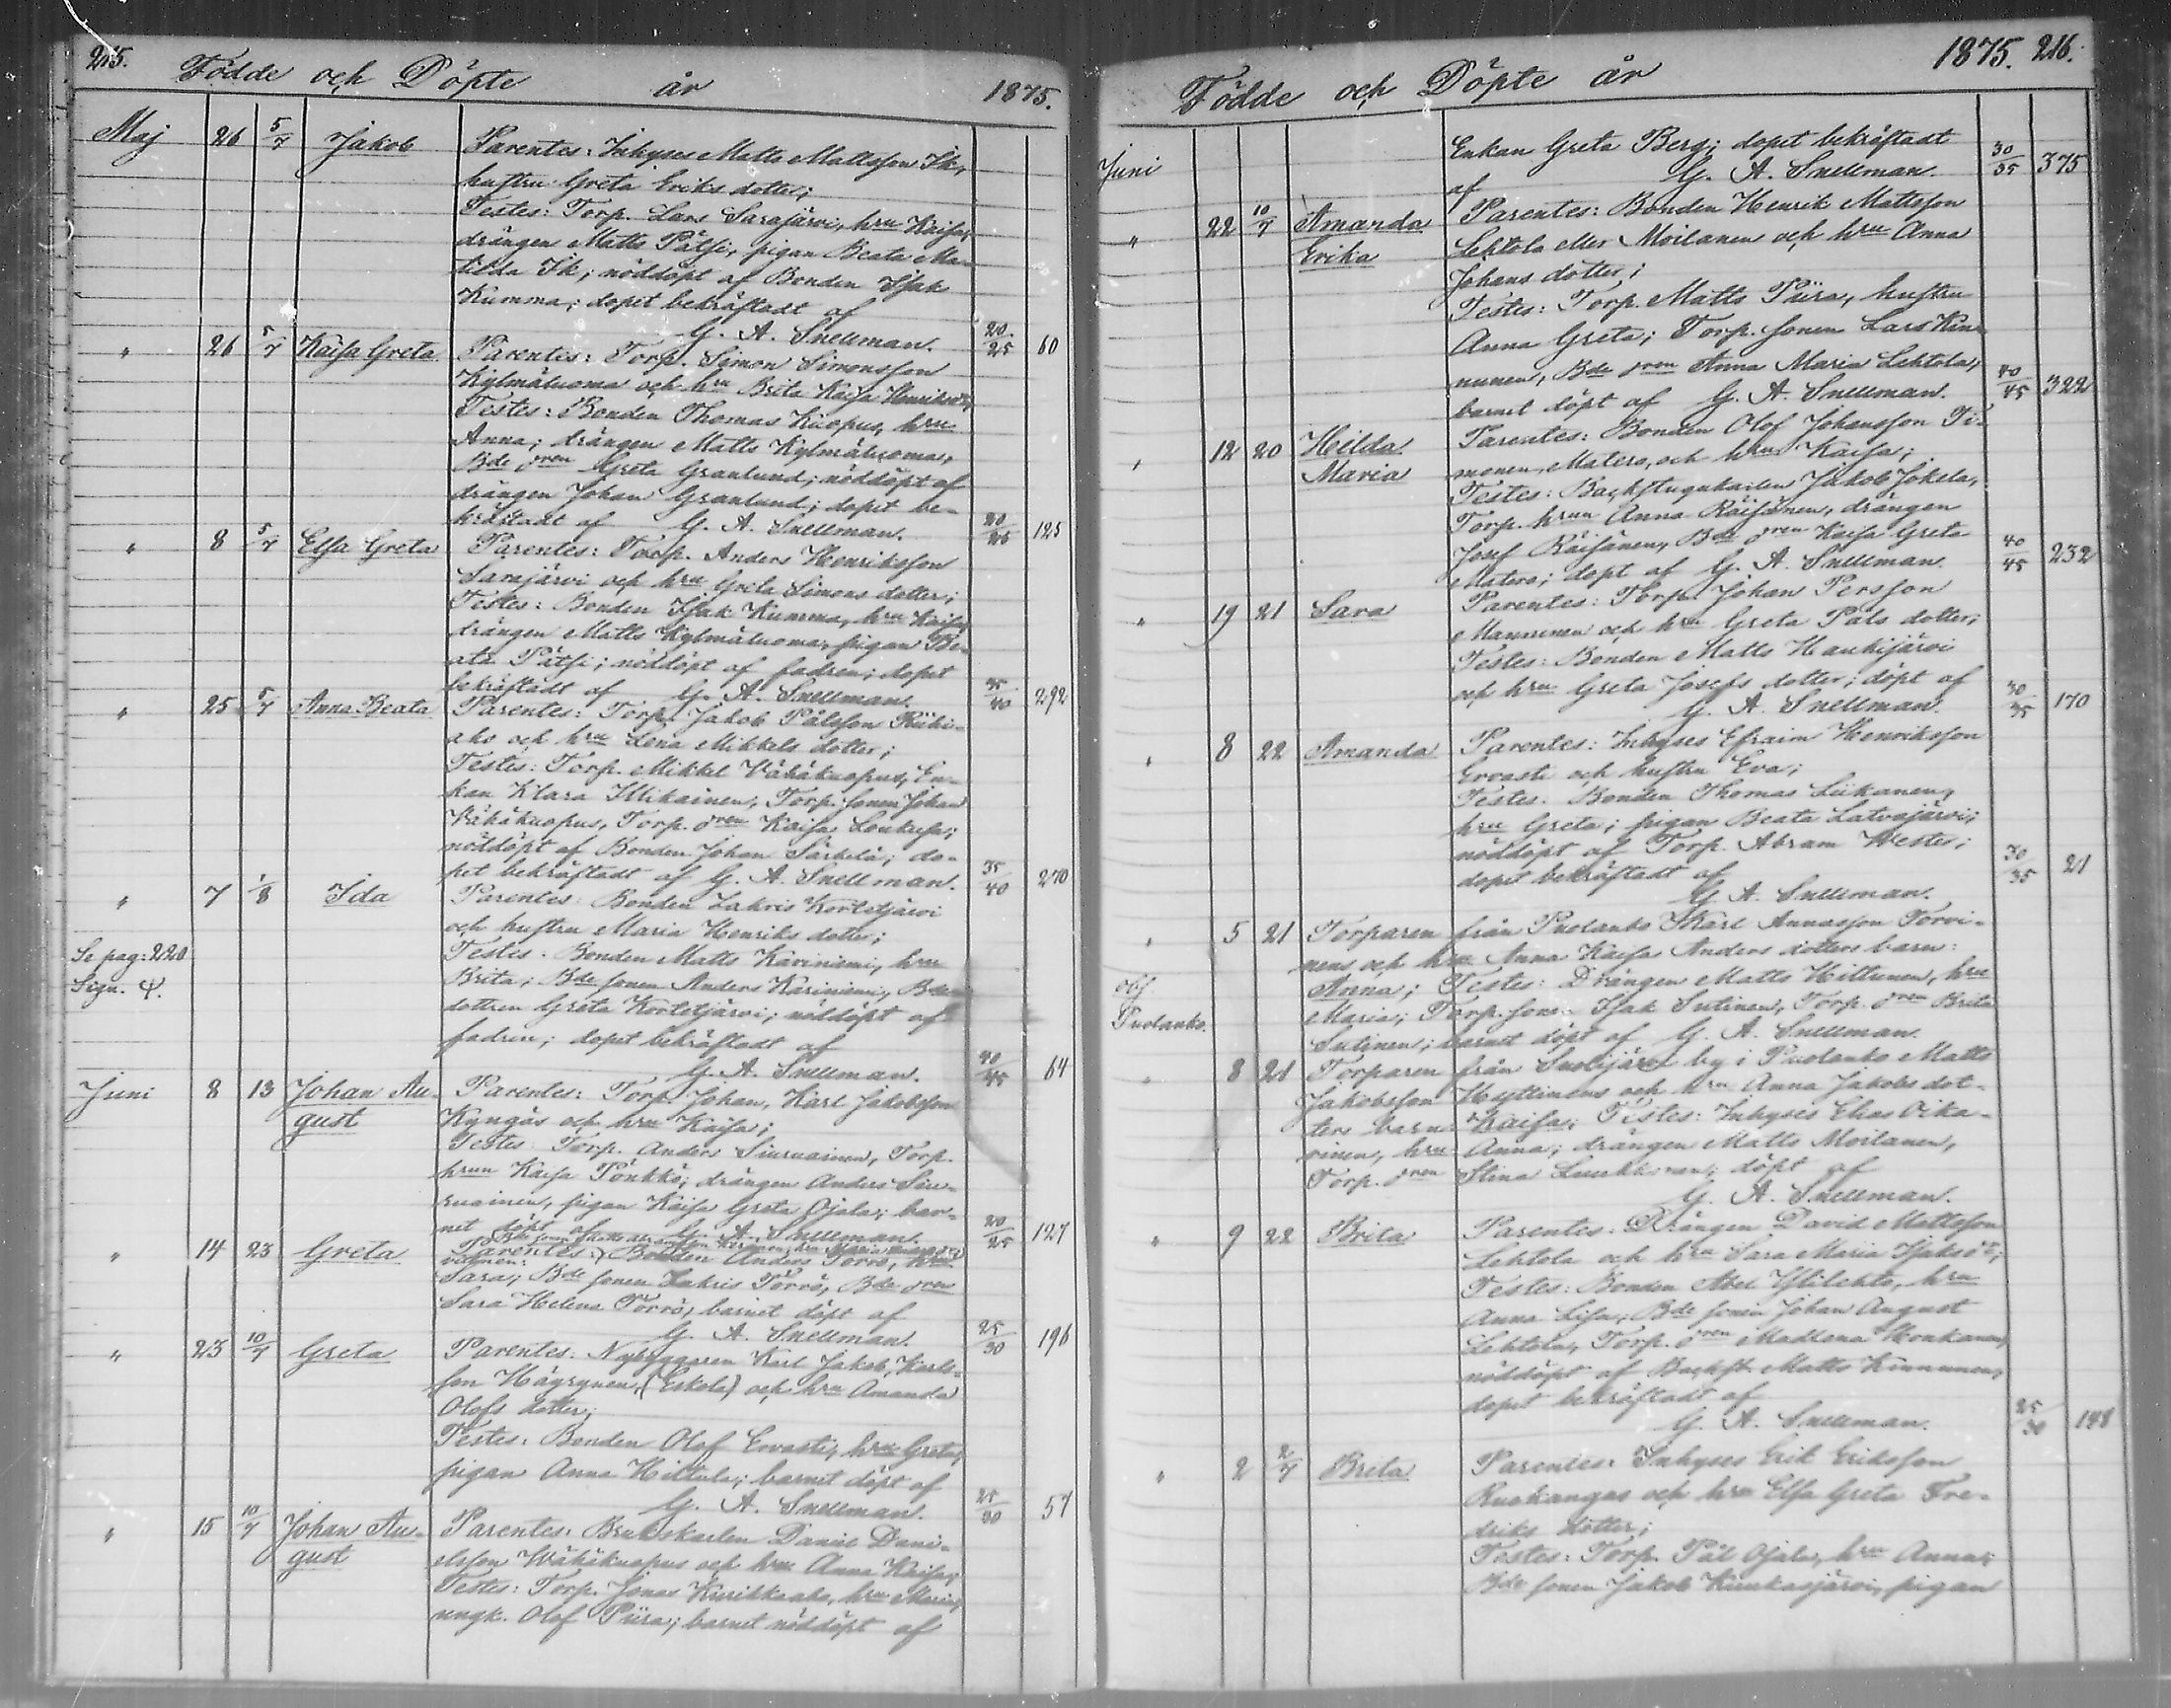 215.
Födde och Döpte år 1875.
Maj 26 5/7 Jakob Parentes: Inhyses Matts Mattsson Ik,
hustru Greta Eriks dotter;
Testes: Torp. Lars Sarajärvi, hru Kaisa;
drängen Matts Pätsi, pigan Beata Ma-
tilda Ik; nöddöpt af Bonden Isak
Kumma; dopet bekräftadt af
G. A. Snellman. 20/25 60
" 26 5/7 Kaisa Greta Parentes: Torp. Simon Simonsson
Kylmäluoma och hru Brita Kaisa Henriksdr;
Testes: Bonden Thomas Kuopus, hru
Anna; drängen Matts Kylmäluoma,
Bde dren Greta Granlund; nöddöpt af
drängen Johan Granlund; dopet be-
kräftadt af G. A. Snellman. 20/25 125
" 8 5/7 Elsa Greta Parentes: Torp. Anders Henriksson
Sarajärvi och hru Greta Simons dotter;
Testes: Bonden Isak Kumma, hru Kaisa;
drängen Matts Kylmäluoma, pigan Be-
ata Pätsi; nöddöpt af fadren; dopet
bekräftadt af G. A. Snellman. 35/40 292
" 25 5/7 Anna Beata Parentes: Torp. Jakob Pålsson Riihi-
aho och hru Lena Mikkels dotter;
Testes: Torp. Mikkel Vähäkuopus, En-
kan Klara Illikainen, Torp. sonen Johan
Vähäkuopus, Torp. dren Kaisa Loukusa;
nöddöpt af Bonden Johan Särkelä; do-
pet bekräftadt af G. A. Snellman. 35/40 270
" 7 1/8 Ida Parentes: Bonden Zakris Kortetjärvi
och hustru Maria Henriks dotter;
Se pag: 220 Testes: Bonden Matts Kariniemi, hru
Sign. Ψ. Brita; Bde sonen Anders Kariniemi, Bde
dottren Greta Kortetjärvi; nöddöpt af
fadren; dopet bekräftadt af
G. A. Snellman. 40/45 64
Juni 8 13 Johan Au- Parentes: Torp. Johan, Karl Jakobsson
gust Kyngäs och hru Kaisa;
Testes: Torp. Anders Siuruainen, Torp.
hrun Kaisa Pönkkö; drängen Anders Siu-
ruainen, pigan Kaisa Greta Ojala; bar-
net döpt af G. A. Snellman. 20/25 127
" 14 23 Greta Parentes: Bonden Anders Törrö, hru
Sara; Bde sonen Zakris Törrö, Bde dren
Sara Helena Törrö; barnet döpt af
G. A. Snellman. 25/30 196
" 23 10/7 Greta Parentes: Nybyggaren Karl Jakob Karls-
son Häyrynen, (Eskola) och hru Amanda
Olofs dotter;
Testes: Bonden Olof Ervasti, hru Greta;
pigan Anna Hiltula; barnet döpt af
G. A. Snellman. 25/30 57
" 15 10/7 Johan Au- Parentes: Brukskarlen Daniel Dani-
gust elsson Wähäkuopus och hru Anna Kaisa;
Testes: Torp. Jonas Kurikkaaho, hru Maria;
ungk. Olof Piira; barnet nöddöpt af
Födde och Döpte år 1875. 216.
Juni Enkan Greta Berg; dopet bekräftadt
af G. A. Snellman. 30/35 375
" 22 10/7 Amanda Parentes: Bonden Henrik Mattsson
Erika Lehtola eller Moilanen och hru Anna
Johans dotter;
Testes: Torp. Matts Piira, hustru
Anna Greta; Torp. sonen Lars Kin-
nunen, Bde dren Anna Maria Lehtola;
barnet döpt af G. A. Snellman. 40/45 322
" 12 20 Hilda Parentes: Bonden Olof Johansson Ti-
Maria monen, Matero, och hru Kaisa;
Testes: Backstugukarlen Jakob Jokela,
Torp. hrun Anna Räisänen, drängen
Josef Räisänen, Bde dren Kaisa Greta
Matero; döpt af G. A. Snellman. 40/45 232
" 19 21 Sara Parentes: Torp. Johan Persson
Manninen och hru Greta Påls dotter;
Testes: Bonden Matts Haukijärvi
och hru Greta Josefs dotter; döpt af
G. A. Snellman. 30/35 170
" 8 22 Amanda Parentes: Inhyses Efraim Henriksson
Ervasti och hustru Eva;
Testes: Bonden Thomas Leikanen,
hru Greta; pigan Beata Latvajärvi;
nöddöpt af Torp. Abram Wester;
dopet bekräftadt af
G. A. Snellman. 30/35 21
" 5 21 Torparen från Puolanko Karl Annasson Torvi-
nens och hru Anna Kaisa Anders dotters barn:
obs. Anna; Testes: Drängen Matts Hiltunen, hru
Puolanko. Maria; Torp. sonen Isak Sutinen, Torp. dren Brita
Sutinen; barnet döpt af G. A. Snellman.
" 8 21 Torparen från Suolijärvi by i Puolanko Matts
Jakobsson Heyttinens och hru Anna Jakobs dot-
ters barn Kaisa; Testes: Inhyses Elias Oika-
rinen, hru Anna; drängen Matts Moilanen,
Torp. dren Stina; döpt af
G. A. Snellman.
" 9 22 Brita Parentes: Drängen David Mattsson
Lehtola och hru Sara Maria Isaksdr;
Testes: Bonden Abel Ylilehto, hru
Anna Lisa; Bde sonen Johan August
Lehtola, Torp. dren Madlena Honkanen;
nöddöpt af Backst. Matts Kinnunen;
dopet bekräftadt af
G. A. Snellman. 25/30 148
" 2 2/7 Brita Parentes: Inhyses Erik Eriksson
Ruokangas och hru Elsa Greta Fre-
driks dotter;
Testes: Torp. Pål Ojala, hru Anna;
Bde sonen Jakob Kuukasjärvi, pigan